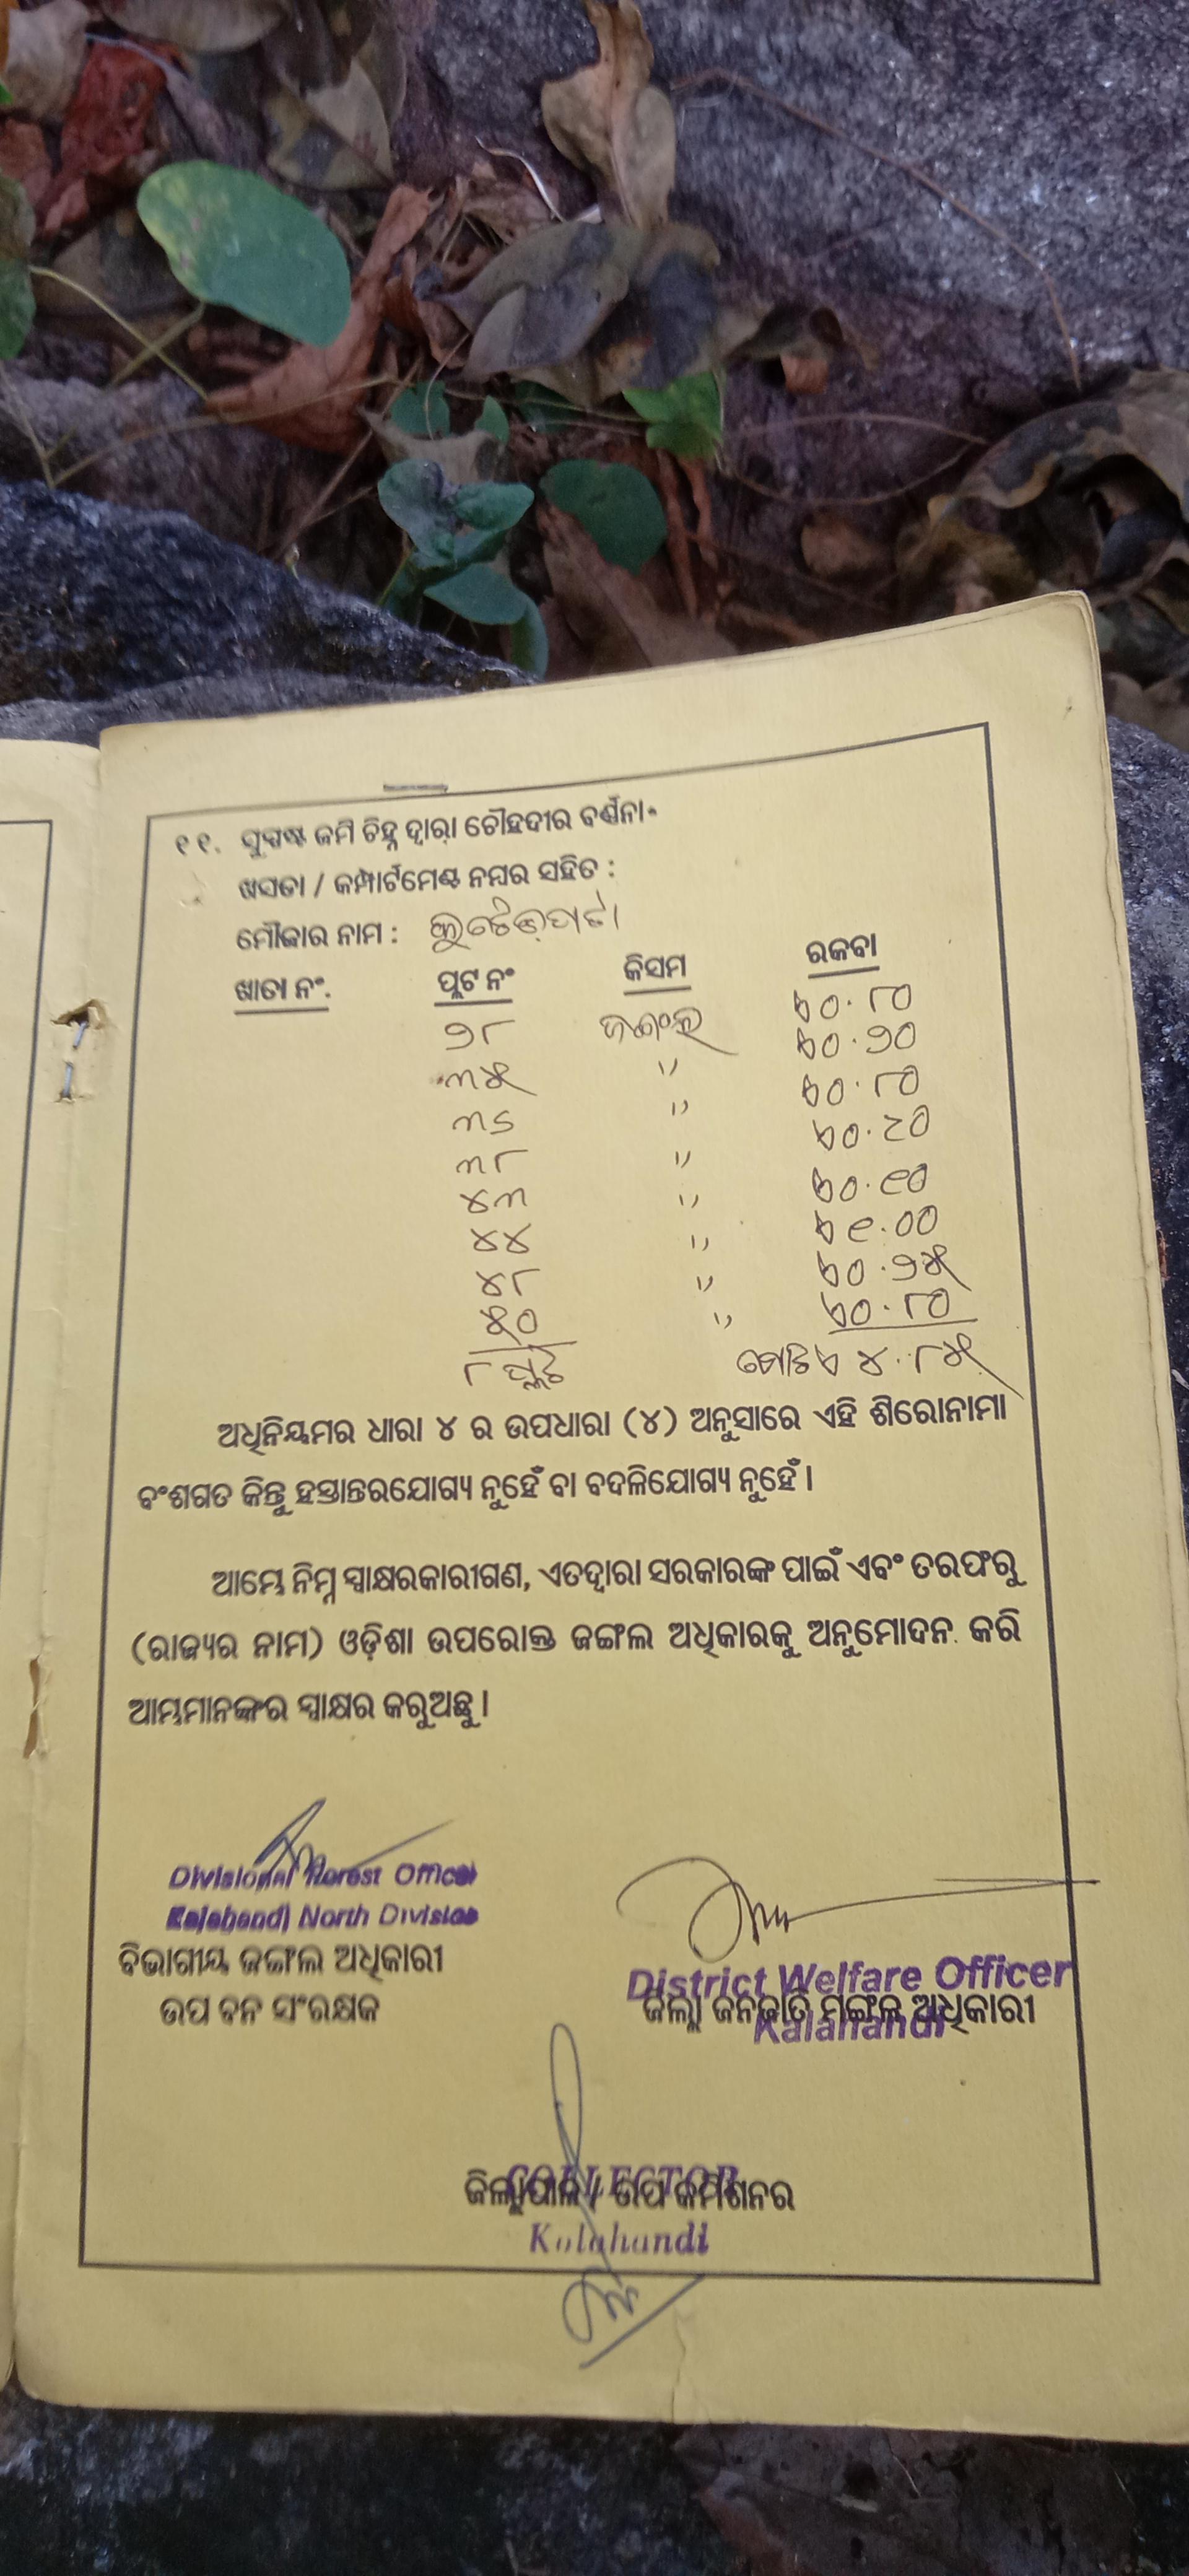 ୧୧. ସୁସ୍ପଷ୍ଟ ଜମି ଚିହ୍ନ ଦ୍ୱାରା ଚୌହଦୀର ବର୍ଣ୍ଣନା-
ଖସଡା / କମ୍ପାର୍ଟମେଣ୍ଟ ନମ୍ବର ସହିତ :
ମୌଜାର ନାମ :
ଖାତା ନଂ. ପ୍ଲଟ ନଂ କିସମ ରକବା
୨୮ ଜଙ୍ଗଲ ଏ୦.୮୦
୩୫ " ଏ୦.୨୦
୩୬ " ଏ୦.୮୦
୩୮ " ଏ୦.୯୦
୪୩ " ଏ୦.୧୦
୪୪ " ଏ୧.୦୦
୪୮ " ଏ୦.୨୫
୫୦ " ଏ୦.୮୦
୮ ପ୍ଲଟ ମୋଟ ଏ ୪.୮୫
ଅଧିନିୟମର ଧାରା ୪ ର ଉପଧାରା (୪) ଅନୁସାରେ ଏହି ଶିରୋନାମା
ବଂଶଗତ କିନ୍ତୁ ହସ୍ତାନ୍ତରଯୋଗ୍ୟ ନୁହେଁ ବା ବଦଳିଯୋଗ୍ୟ ନୁହେଁ ।
ଆମ୍ଭେ ନିମ୍ନ ସ୍ୱାକ୍ଷରକାରୀଗଣ, ଏତଦ୍ୱାରା ସରକାରଙ୍କ ପାଇଁ ଏବଂ ତରଫରୁ
(ରାଜ୍ୟର ନାମ) ଓଡ଼ିଶା ଉପରୋକ୍ତ ଜଙ୍ଗଲ ଅଧିକାରକୁ ଅନୁମୋଦନ କରି
ଆମ୍ଭମାନଙ୍କର ସ୍ୱାକ୍ଷର କରୁଅଛୁ ।
Divisional Forest Officer
Kalahandi North Division
ବିଭାଗୀୟ ଜଙ୍ଗଲ ଅଧିକାରୀ
ଉପ ବନ ସଂରକ୍ଷକ
District Welfare Officer
ଜିଲ୍ଲା ଜନଜାତି ମଙ୍ଗଳ ଅଧିକାରୀ
Kalahandi
COLLECTOR
ଜିଲ୍ଲାପାଳ / ଉପ କମିଶନର
Kalahandi